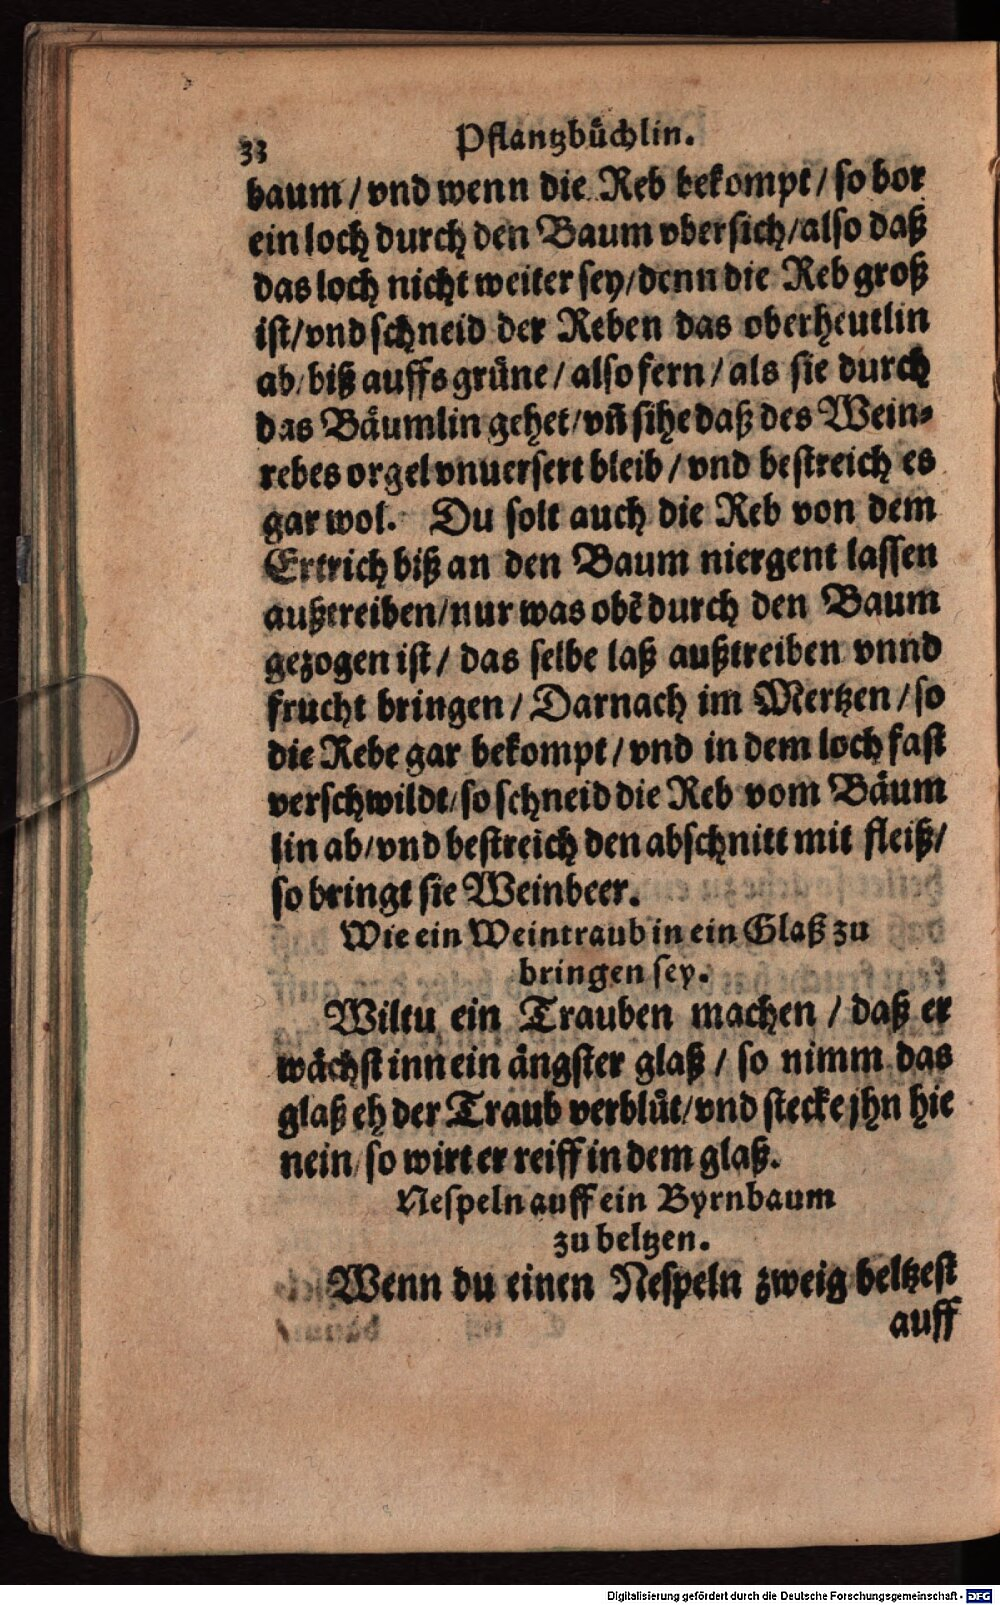 33 Pflantzbůchlin.
baum / vnd wenn die Reb bekompt / so bor
ein loch durch den Baum vbersich / also daß
das loch nicht weiter sey / denn die Reb groß
ist / vnd schneid der Reben das oberheutlin
ab / biß auffs grůne / also fern / als sie durch
das Båumlin gehet / vñ sihe daß des Wein⸗
rebes orgel vnuersert bleib / vnd bestreich es
gar wol. Du solt auch die Reb von dem
Ertrich biß an den Baum niergent lassen
außtreiben / nur was obẽ durch den Baum
gezogen ist / das selbe laß außtreiben vnnd
frucht bringen / Darnach im Mertzen / so
die Rebe gar bekompt / vnd in dem loch fast
verschwildt / so schneid die Reb vom Båum
lin ab / vnd bestreich den abschnitt mit fleiß /
so bringt sie Weinbeer.
Wie ein Weintraub in ein Glaß zu
bringen sey.
Wiltu ein Trauben machen / daß er
wåchst inn ein ångster glaß / so nimm das
glaß eh der Traub verblůt / vnd stecke jhn hie
nein / so wirt er reiff in dem glaß.
Nespeln auff ein Byrnbaum
zu beltzen.
Wenn du einen Nespeln zweig beltzest
auff
Digitalisierung gefördert durch die Deutsche Forschungsgemeinschaft - DFG